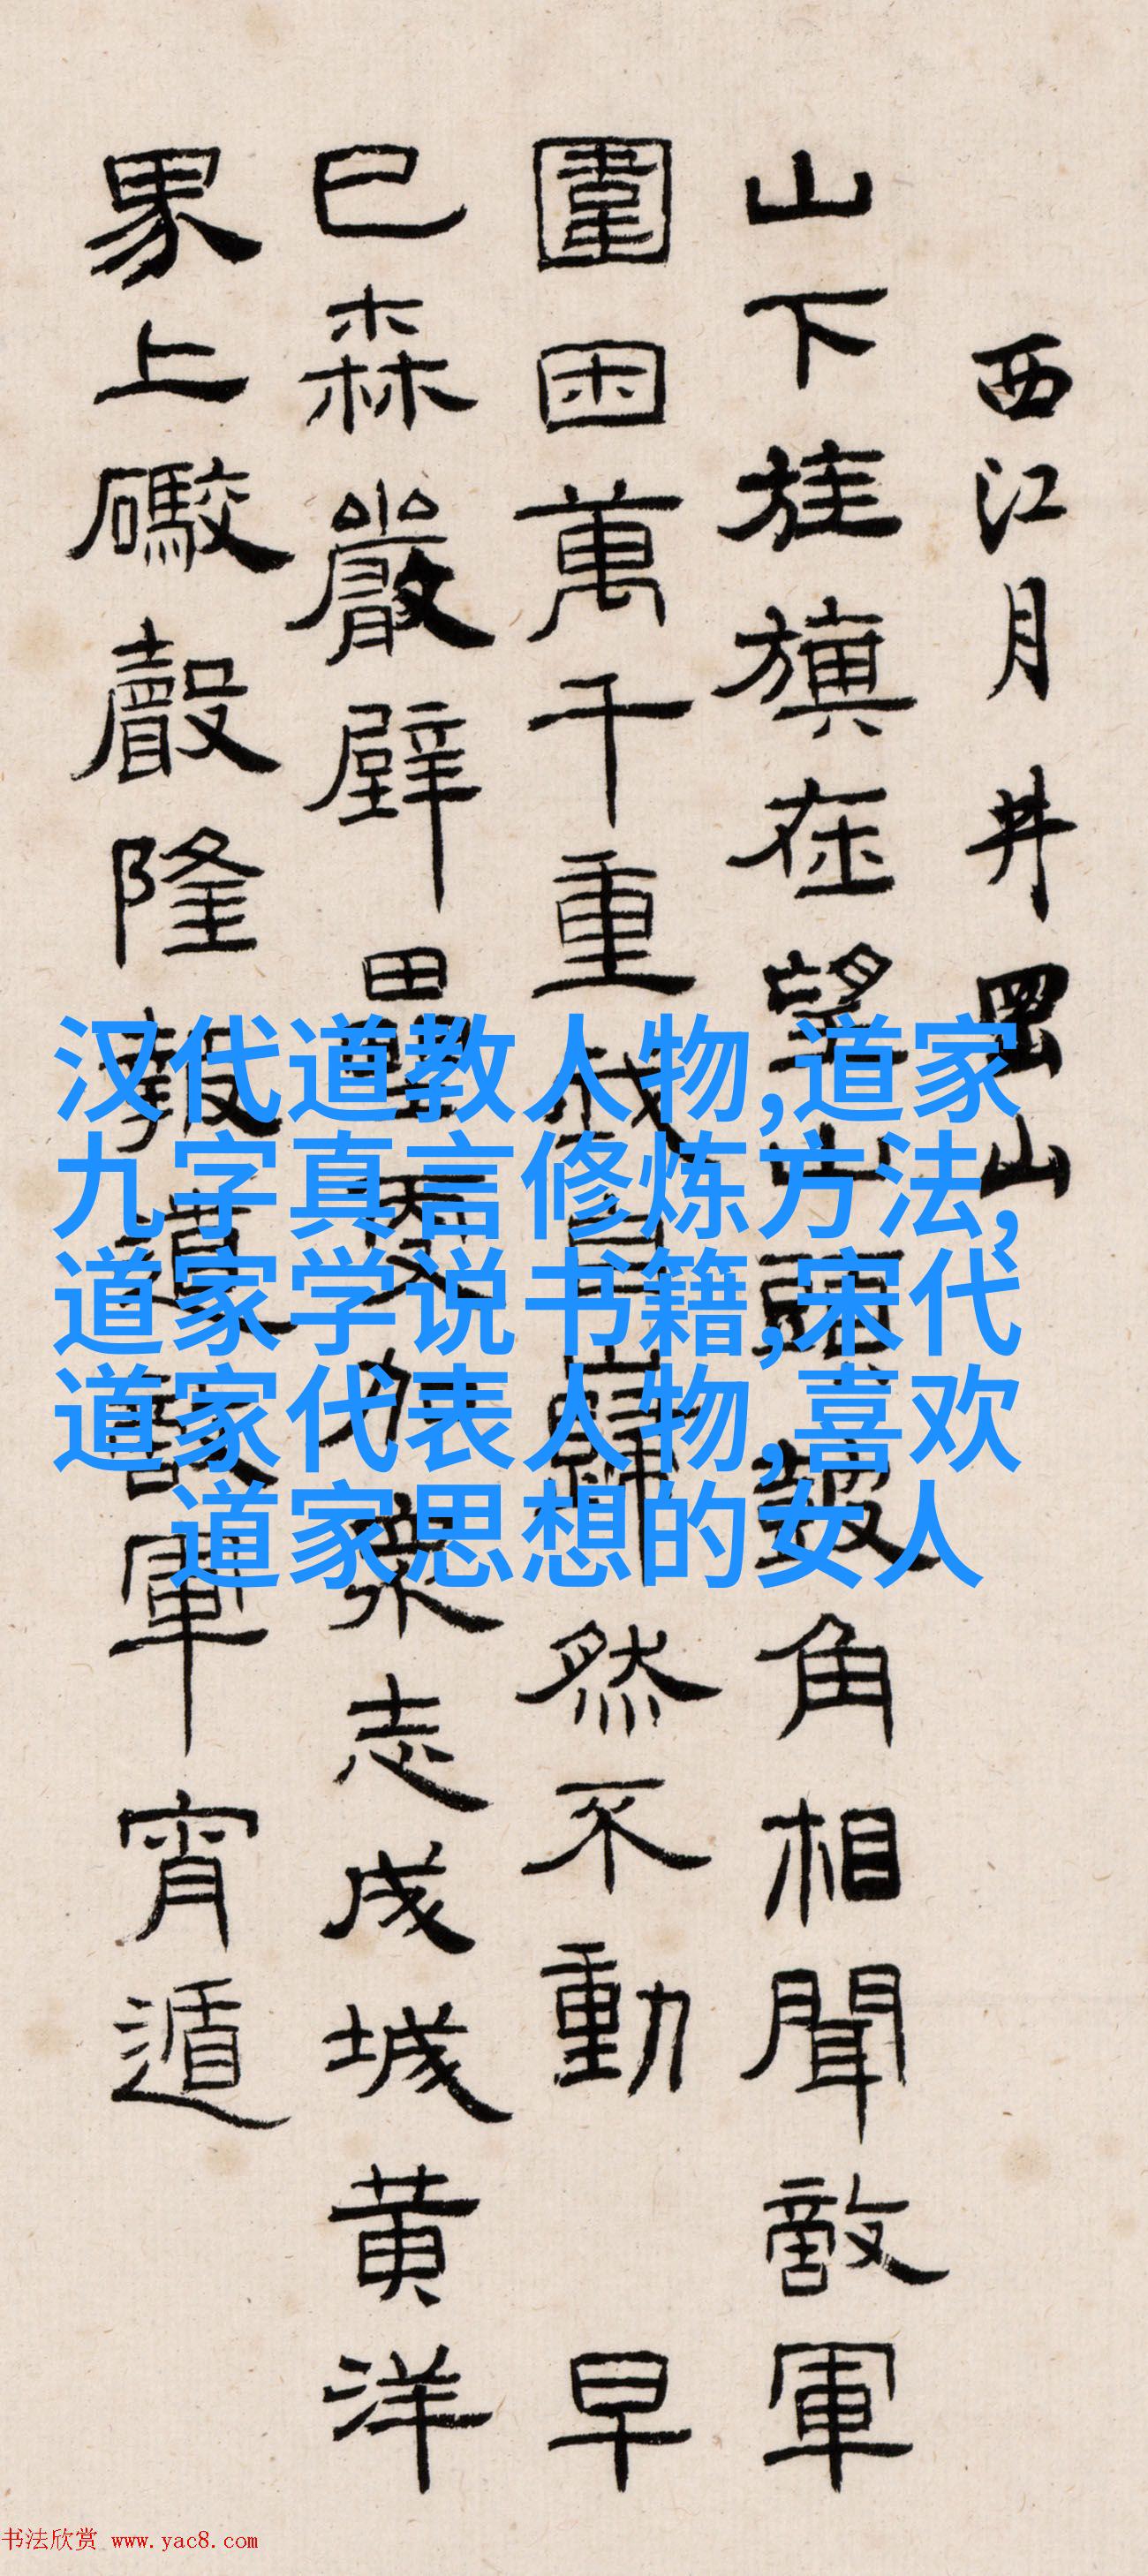 西江月 井岡山
山下旌旗在望山頭鼓角相聞敵軍
圍困萬千重我自巋然不動 早
已森嚴壁壘更加衆志成城黄洋
界上礮聲隆報道敵軍宵遁
汉代道教人物,道家
九字真言修炼方法,
道家学说书籍,宋代
道家代表人物,喜欢
道家思想的女人
书法欣赏 www.yac8.com